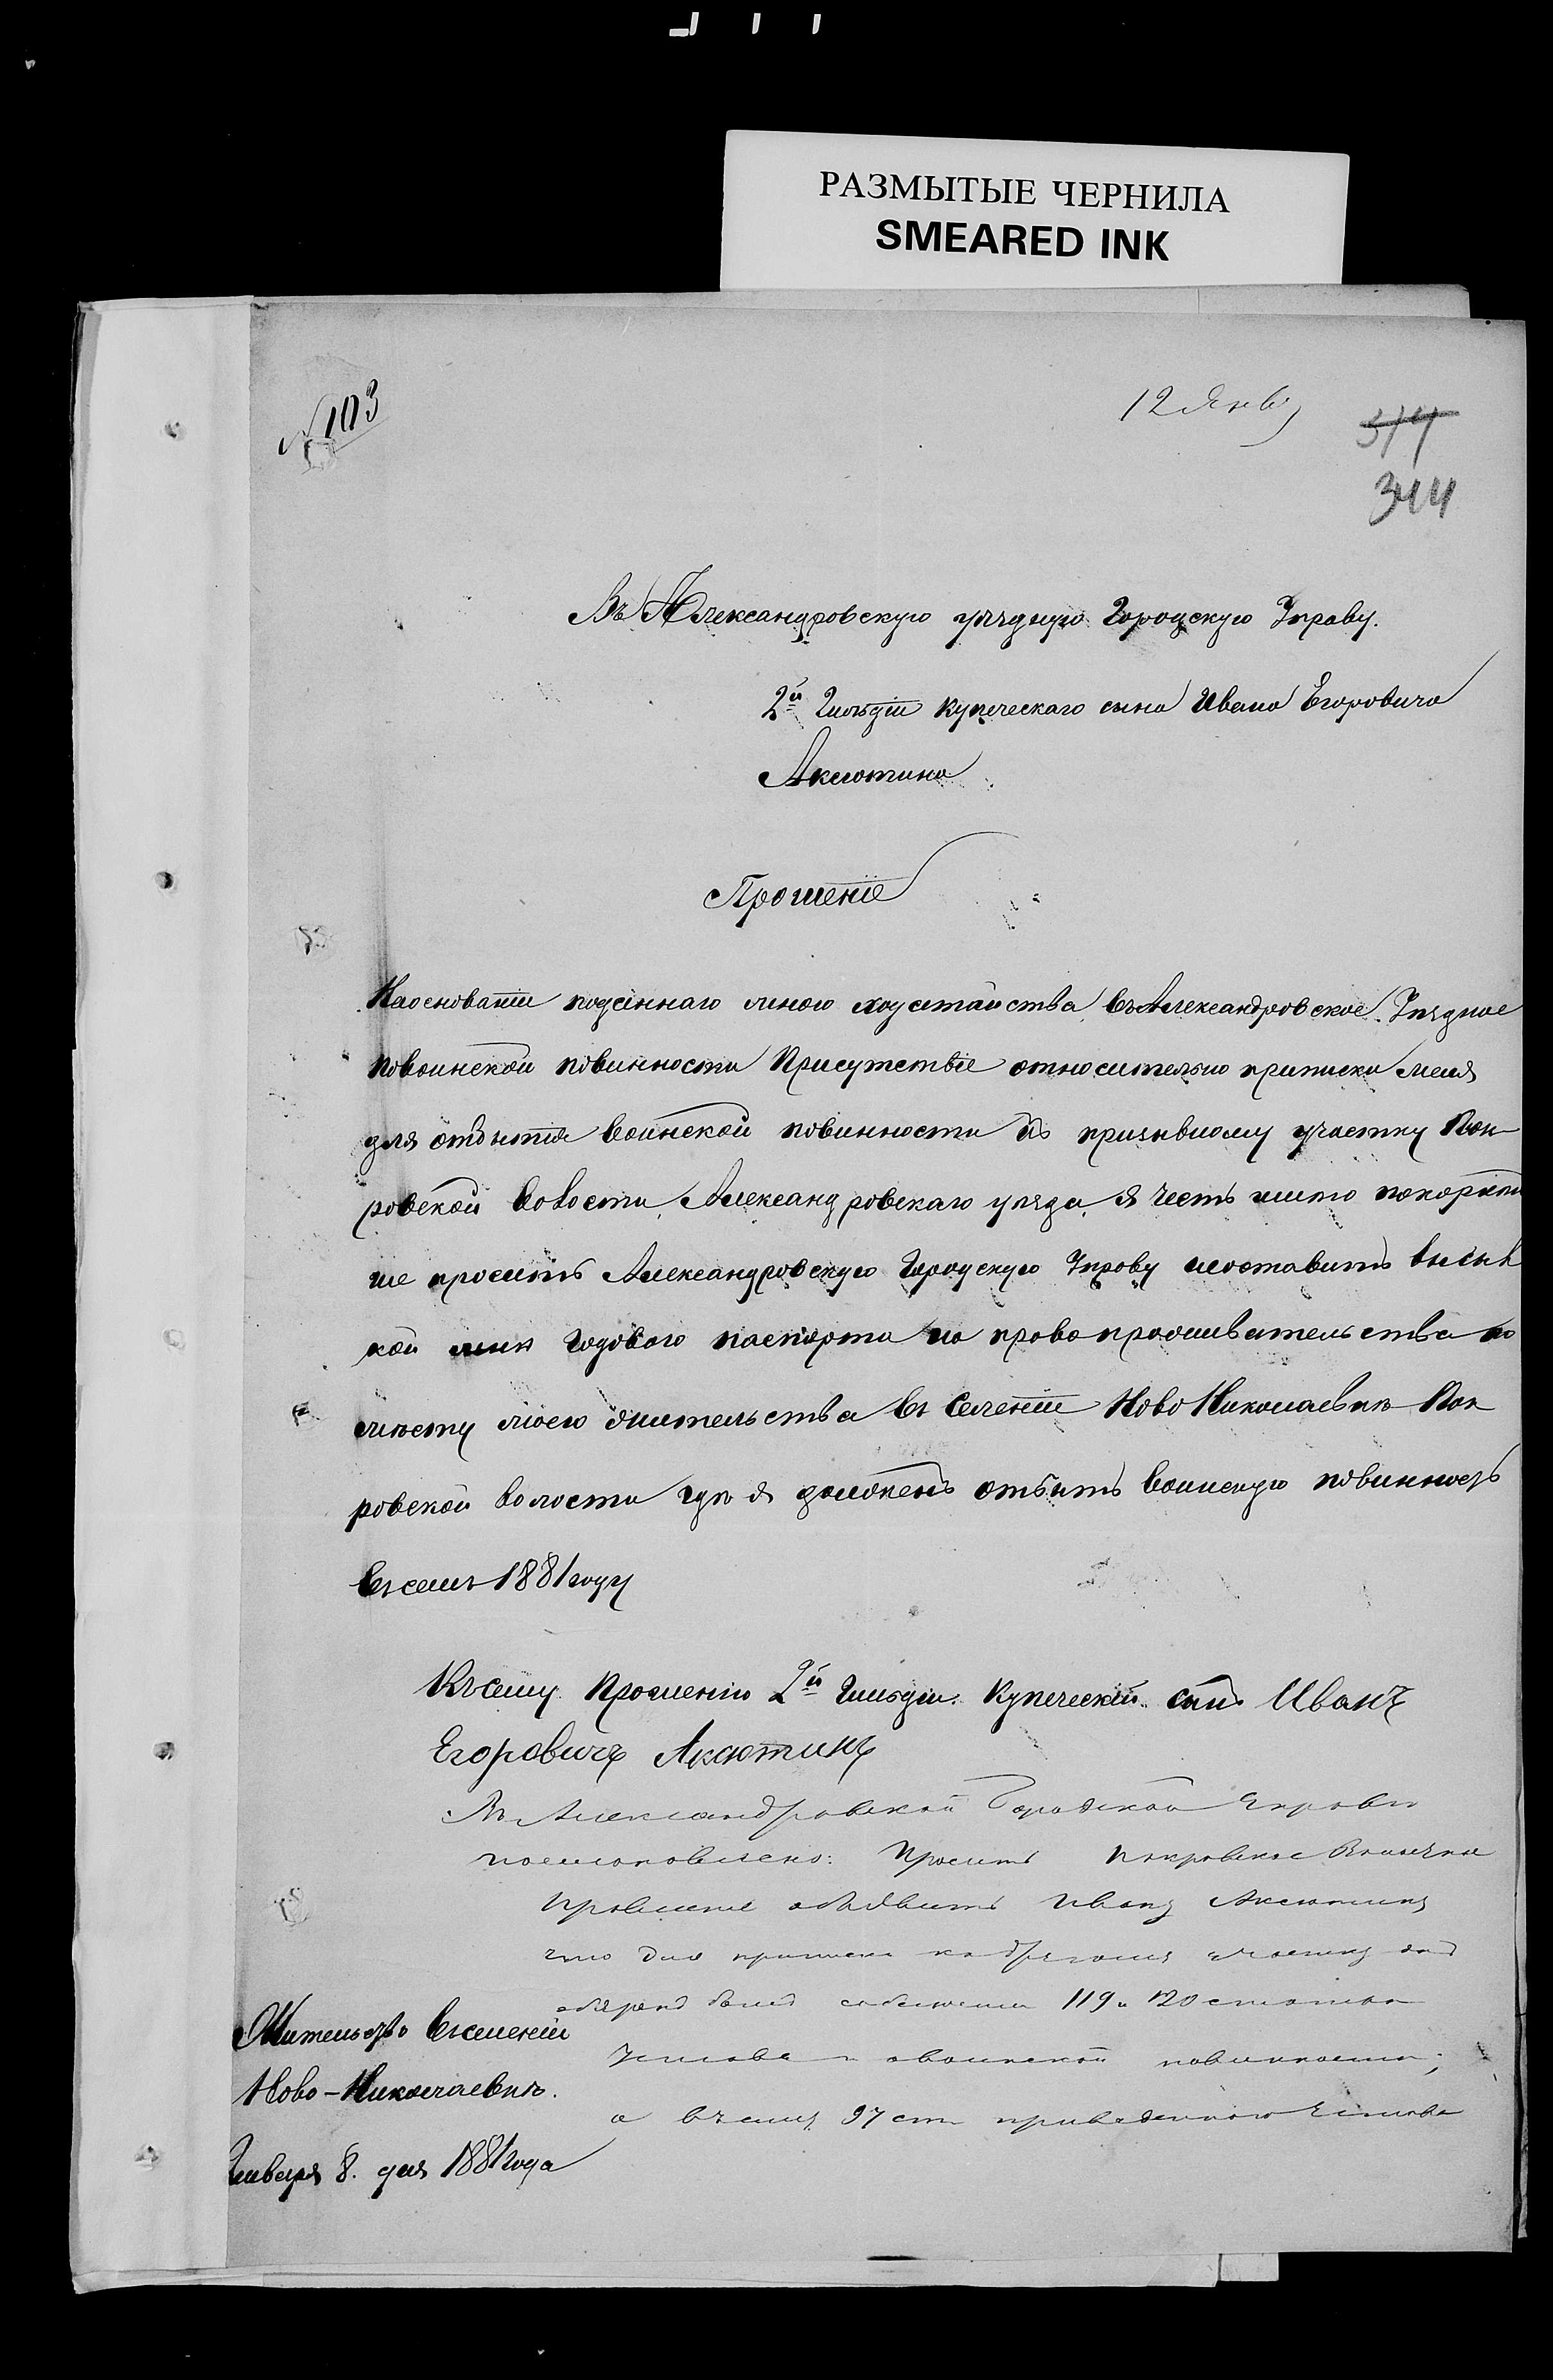 РАЗМЫТЫЕ ЧЕРНИЛА
SMEARED INK
№ 103
12 Янв
344
Въ Александровскую уѣздную Городскую Управу.
2й Гильдіи купеческаго сына Ивана Егоровича
Аксютина
Прошеніе
На основаніи поданнаго мною ходатайства въ Александровское Уѣздное
повоинской повинности Присутствіе относительно приписки меня
для отбытія воинской повинности къ призывному участку Пок
ровской волости, Александровскаго уѣзда, я честь имѣю покорнѣй
ше просить Александровскую Городскую Управу
годового паспорта на право по
мѣсту моего жительства въ селеніи Ново Николаевкѣ Пок
ровской волости гдѣ я долженъ отбыть воинскую повинность
въ семъ 1881 году
Къ сему Прошенію 2й Гильдіи Купеческій сынъ Иванъ
Егоровичъ Аксютинъ
Въ Александровской Городской Управѣ
постановлено: Просить Покровское Волостное
Правленіе объявить Ивану Аксютину
что для приписки къ участку
119 и 120
Устава о воинской повинности;
а 97 ст приведеннаго Устава
Жительство въ селеніи
Ново-Николаевкѣ.
Января 8. дня 1881 года